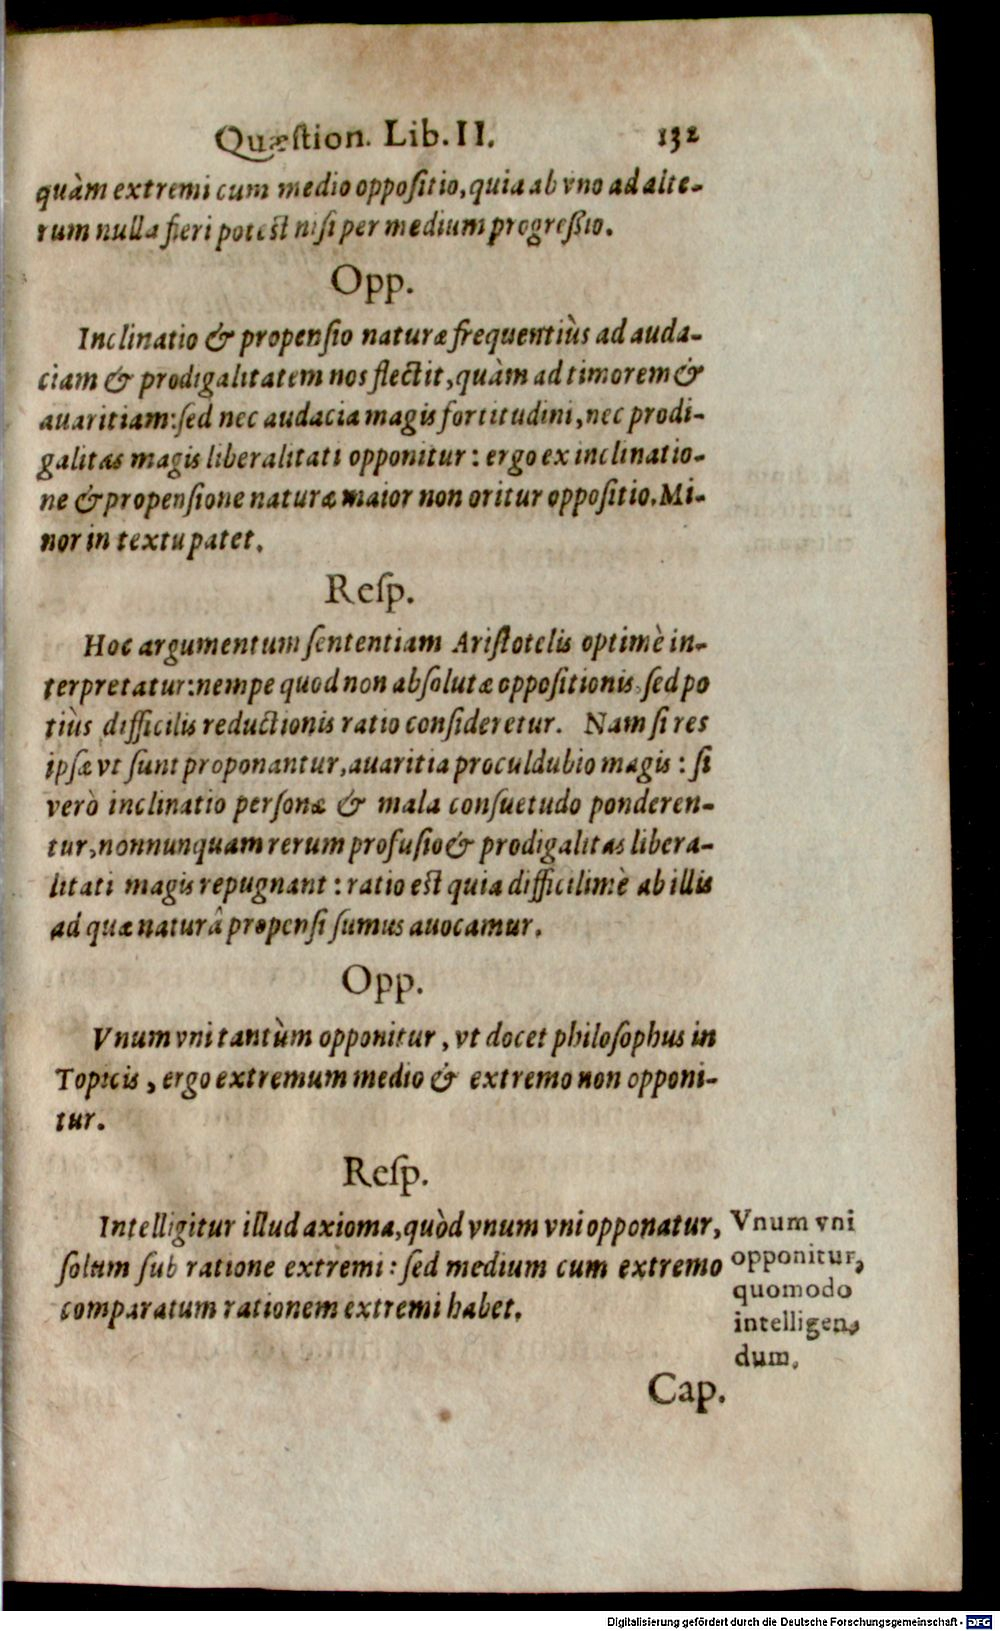 Quæſtion. Lib. II. 132
quàm extremi cum medio oppoſitio, quia ab vno ad alte-
rum nulla fieri poteſt niſi per medium progreſsio.
Opp.
Inclinatio & propenſio naturæ frequentiùs ad auda-
ciam & prodigalitatem nos flectit, quàm ad timorem &
auaritiam: ſed nec audacia magis fortitudini, nec prodi-
galitas magis liberalitati opponitur: ergo ex inclinatio-
ne & propenſione naturæ maior non oritur oppoſitio. Mi-
nor in textu patet.
Reſp.
Hoc argumentum ſententiam Ariſtotelis optimè in-
terpretatur: nempe quod non abſolutæ oppoſitionis ſed po
tiùs difficilis reductionis ratio conſideretur. Nam ſi res
ipſæ vt ſunt proponantur, auaritia proculdubio magis: ſi
verò inclinatio perſonæ & mala conſuetudo ponderen-
tur, nonnunquam rerum profuſio & prodigalitas libera-
litati magis repugnant: ratio eſt quia difficilimè ab illis
ad quæ naturâ propenſi ſumus auocamur.
Opp.
Vnum vni tantùm opponitur, vt docet philoſophus in
Topicis, ergo extremum medio & extremo non opponi-
tur.
Reſp.
Intelligitur illud axioma, quòd vnum vni opponatur,
ſolùm ſub ratione extremi: ſed medium cum extremo
comparatum rationem extremi habet.
Vnum vni
opponitur,
quomodo
intelligen,
dum.
Cap.
Digitalisierung gefördert durch die Deutsche Forschungsgemeinschaft - DFG